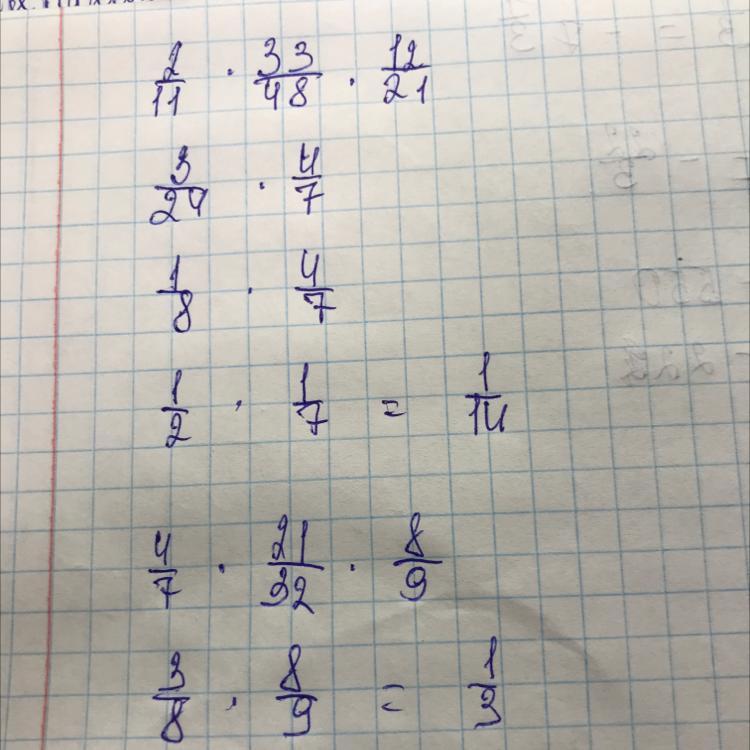 2/11 · 33/48 · 12/21
3/24 · 4/7
1/8 · 4/7
1/2 · 1/7 = 1/14
4/7 · 21/32 · 8/9
3/8 · 8/9 = 1/3